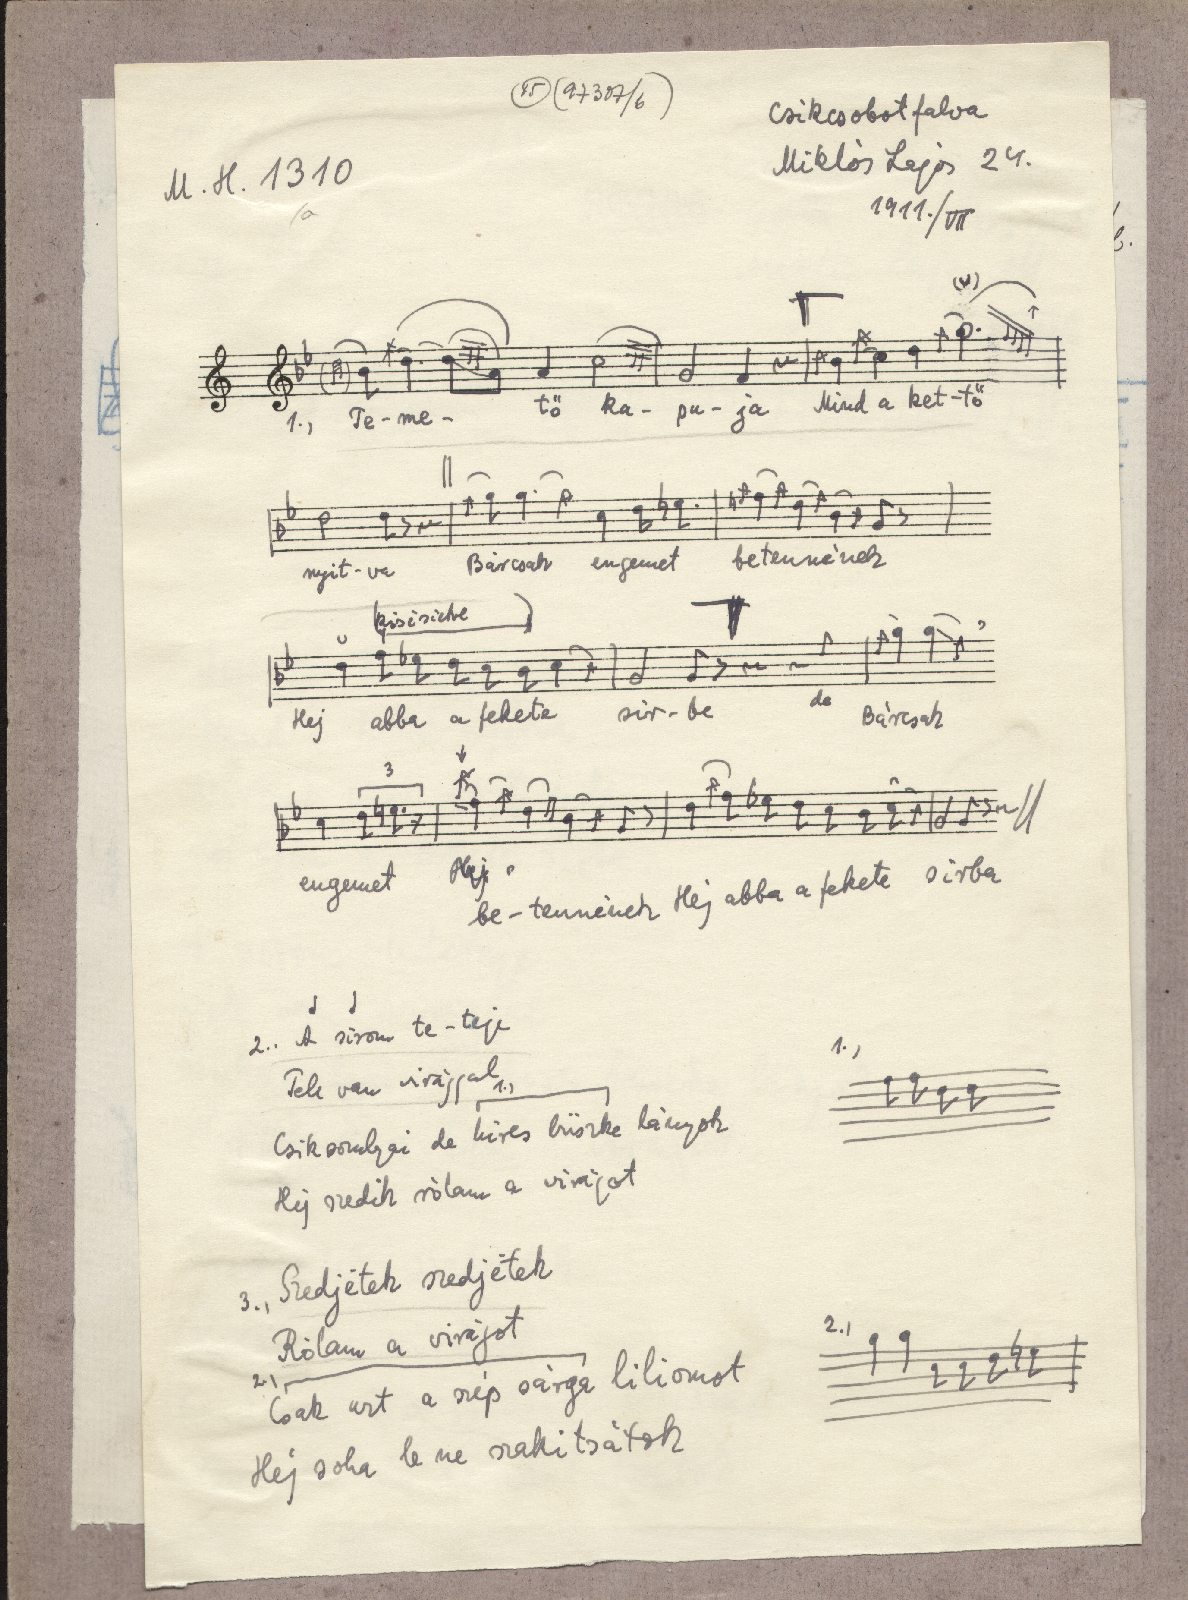 45 (97307/6)
Csikcsobotfalva
Miklós Lajos 24.
1911./VII
M. H. 1310
/a
1., Te-me- tő ka- pu- ja Mind a ket-tő
nyit-va Bárcsak engemet betennének
Hej abba a fekete sír-be de Bárcsak
3
engemet Hej
be-tennének Hej abba a fekete sírba
2.. A sirom te-teje
Tele van virággal
1.,
Csiksomlyai de híres büszke lányok
Hej szedik rólam a virágot
1.,
3., Szedjétek szedjétek
Rólam a virágot
2.,
Csak azt a szép sárga liliomot
Héj soha le ne szakitsátok
2.,